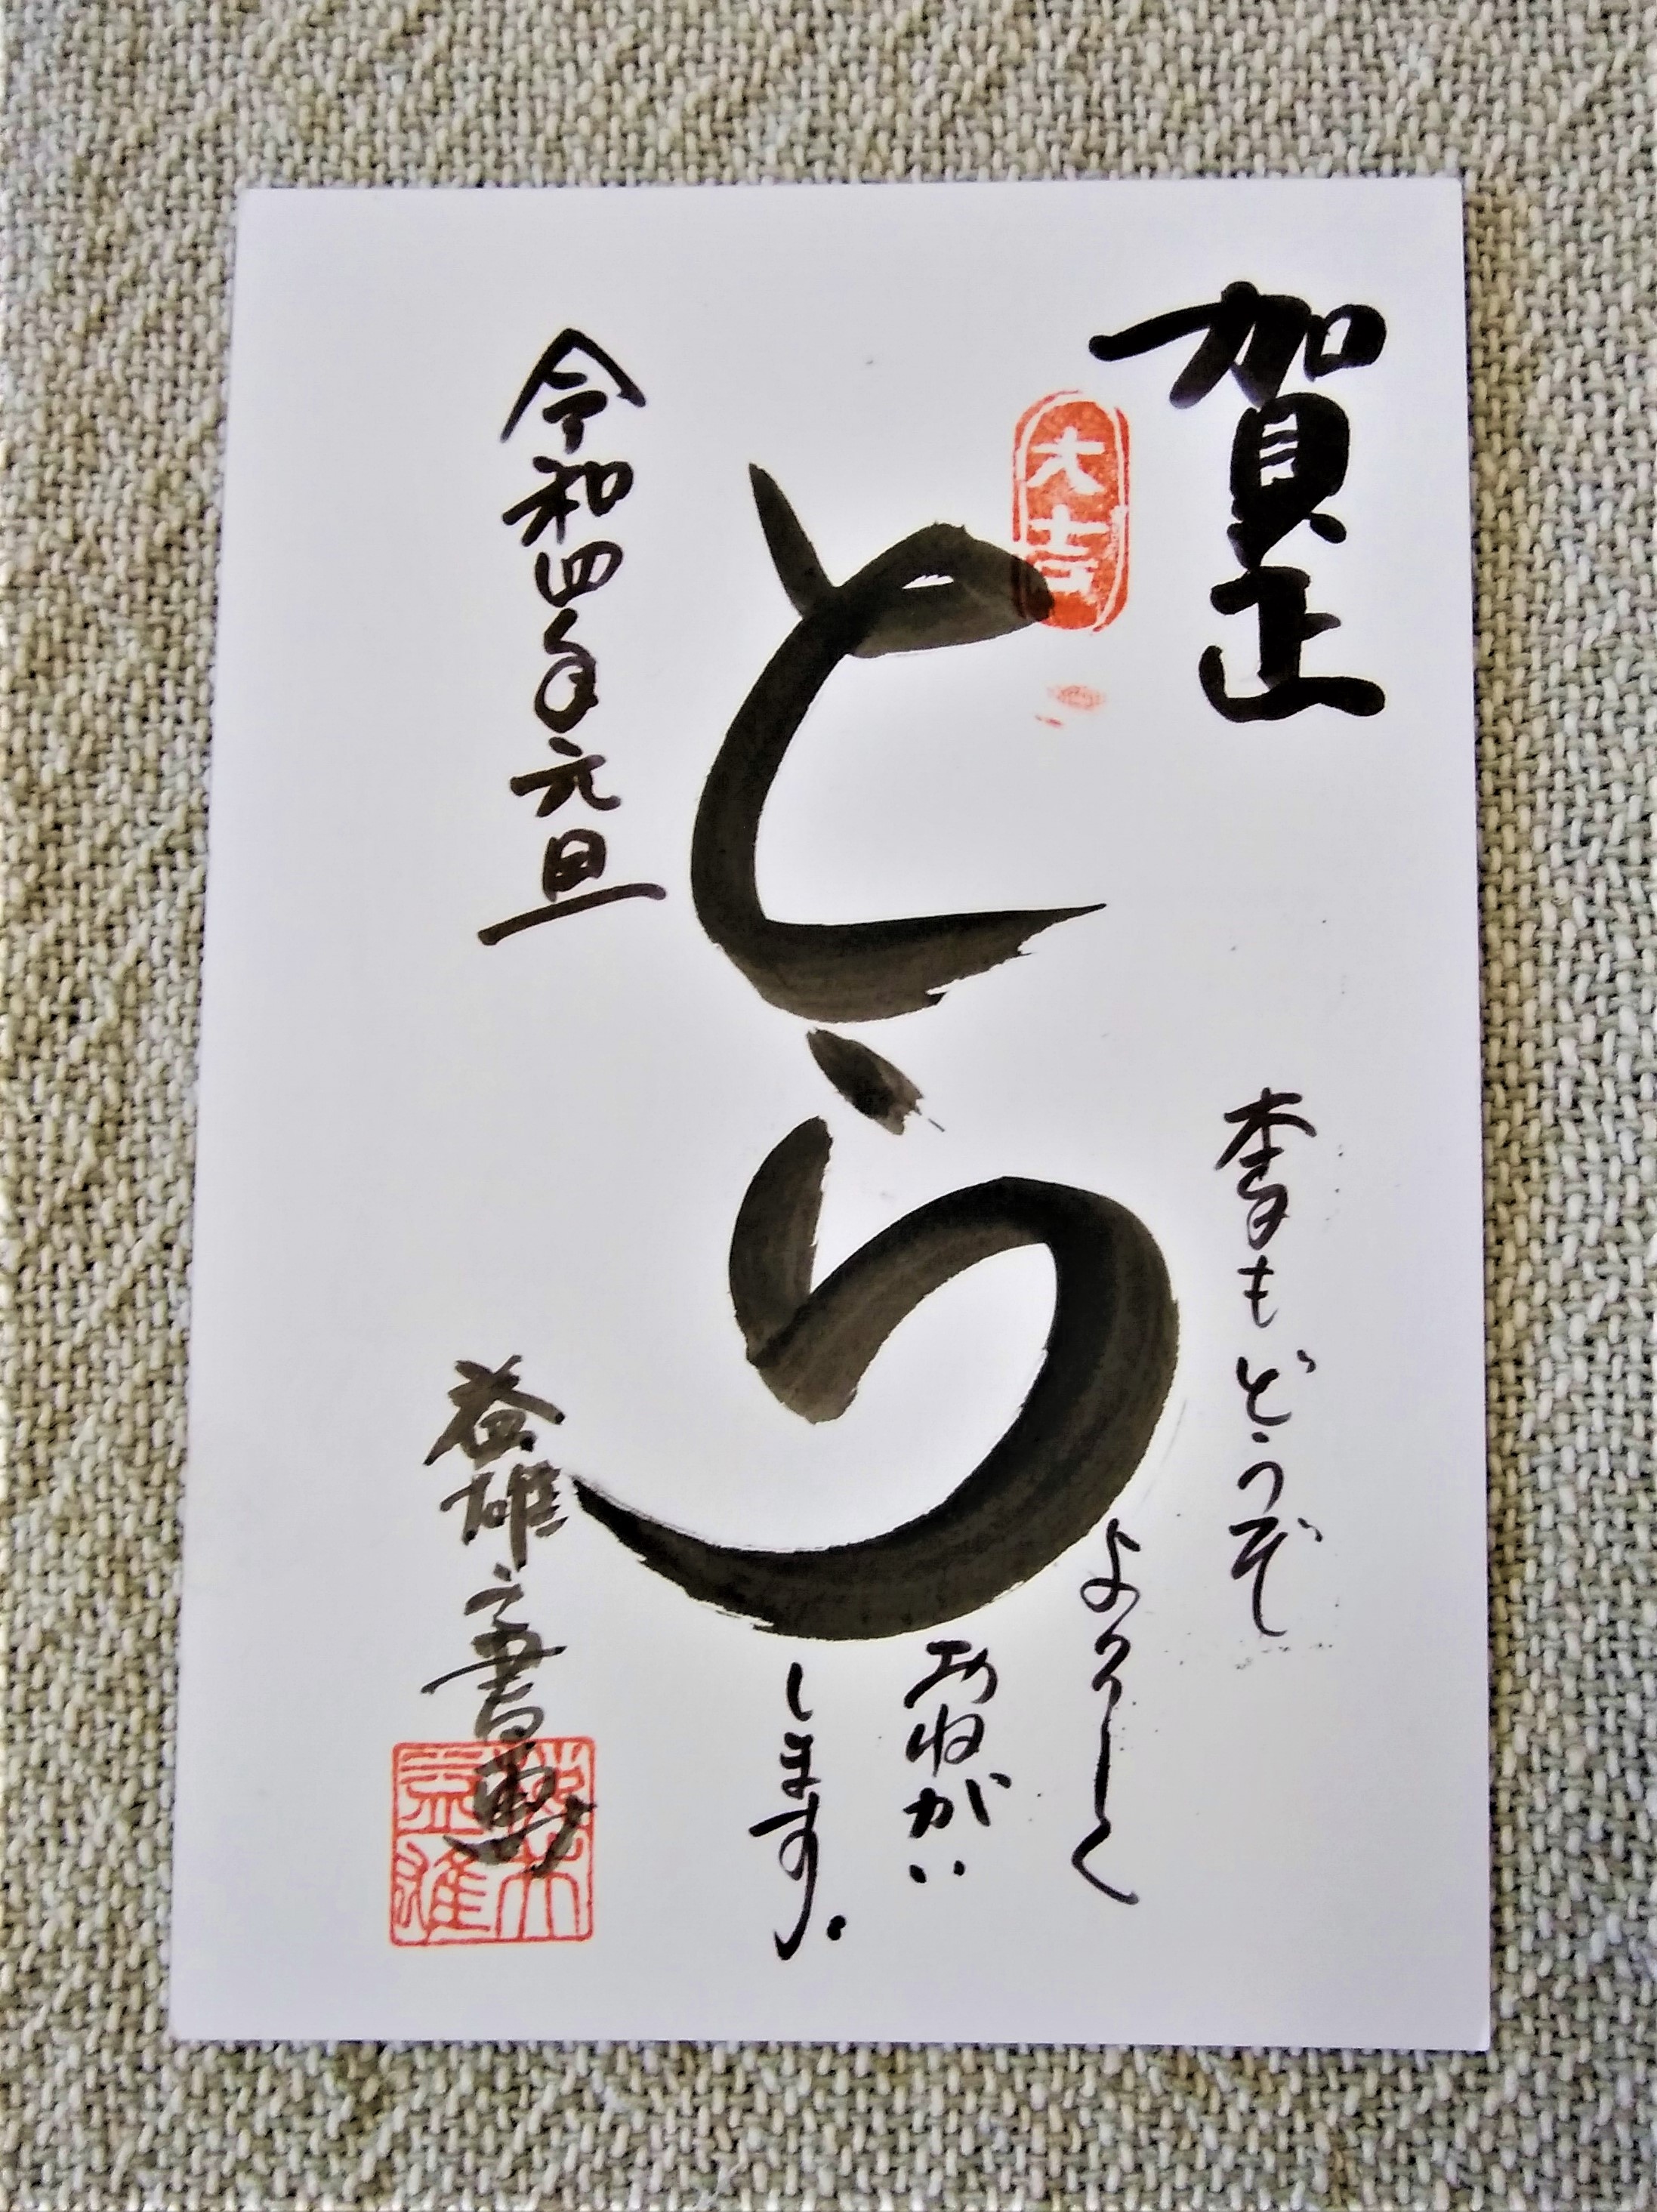 賀正
大吉
本年もどうぞ
よろしく
おねがい
します。
とら
令和四年元旦
益雄之書